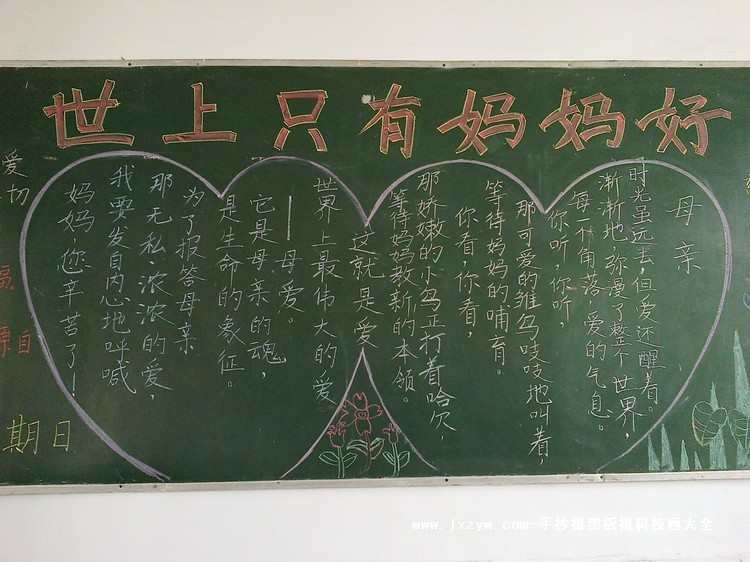 世上只有妈妈好
母亲
时光虽远去,但爱还醒着。
渐渐地,弥漫了整个世界,
每个角落爱的气息。
你听,你听,
那可爱的雏鸟吱吱地叫着,
等待妈妈的哺育。
你看,你看,
那娇嫩的小鸟正打着哈欠,
等待妈妈教新的本领。
这就是爱
世界上最伟大的爱
——母爱。
它是母亲的魂,
是生命的象征。
为了报答母亲
那无私浓浓的爱,
我要发自内心地呼喊
妈妈,您辛苦了!
爱切
福
源自
期日
www.jxzyw.com